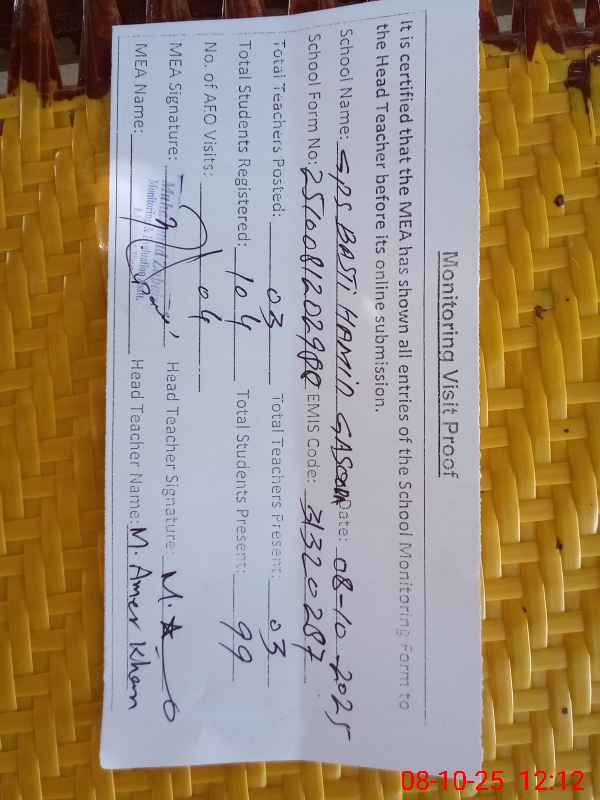 Monitoring Visit Proof
It is certified that the MEA has shown all entries of the School Monitoring Form to
the Head Teacher before its online submission.
School Name: GPS BASTI HAMID Date: 08-10-2025
School Form No: EMIS Code: 31320287
Total Teachers Posted: 03 Total Teachers Present: 03
Total Students Registered: 104 Total Students Present: 99
No. of AEO Visits: 04
MEA Signature: Head Teacher Signature:
MEA Name: Head Teacher Name: M. Amer Khan
08-10-25 12:12